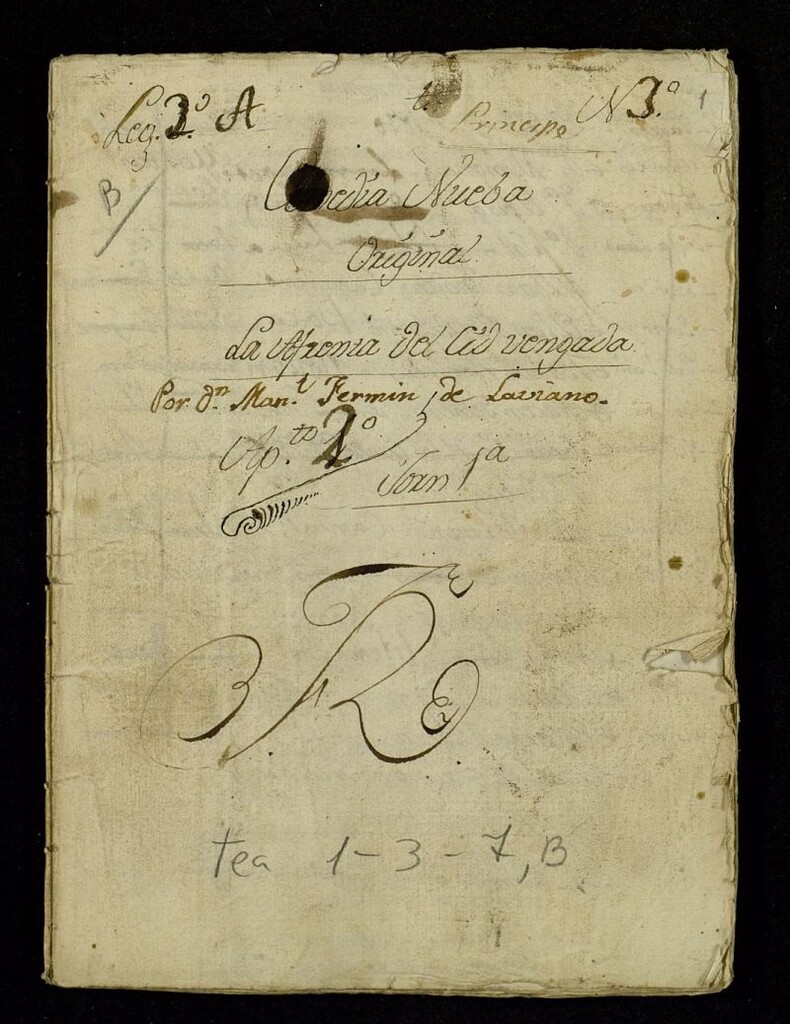 Leg. 2.º A t. Principe N 3.º 1
B
Comedia Nueba
Original.
La Afrenta del Cid vengada
Por d.n Man.l Fermin de Laviano.
Ap.to 2º
Jorn 1ª
tea 1-3-7, B